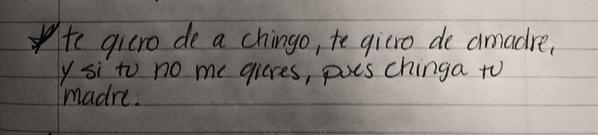 te qiero de a chingo, te qiero de amadre,
y si tu no me qieres, pues chinga tu
madre.